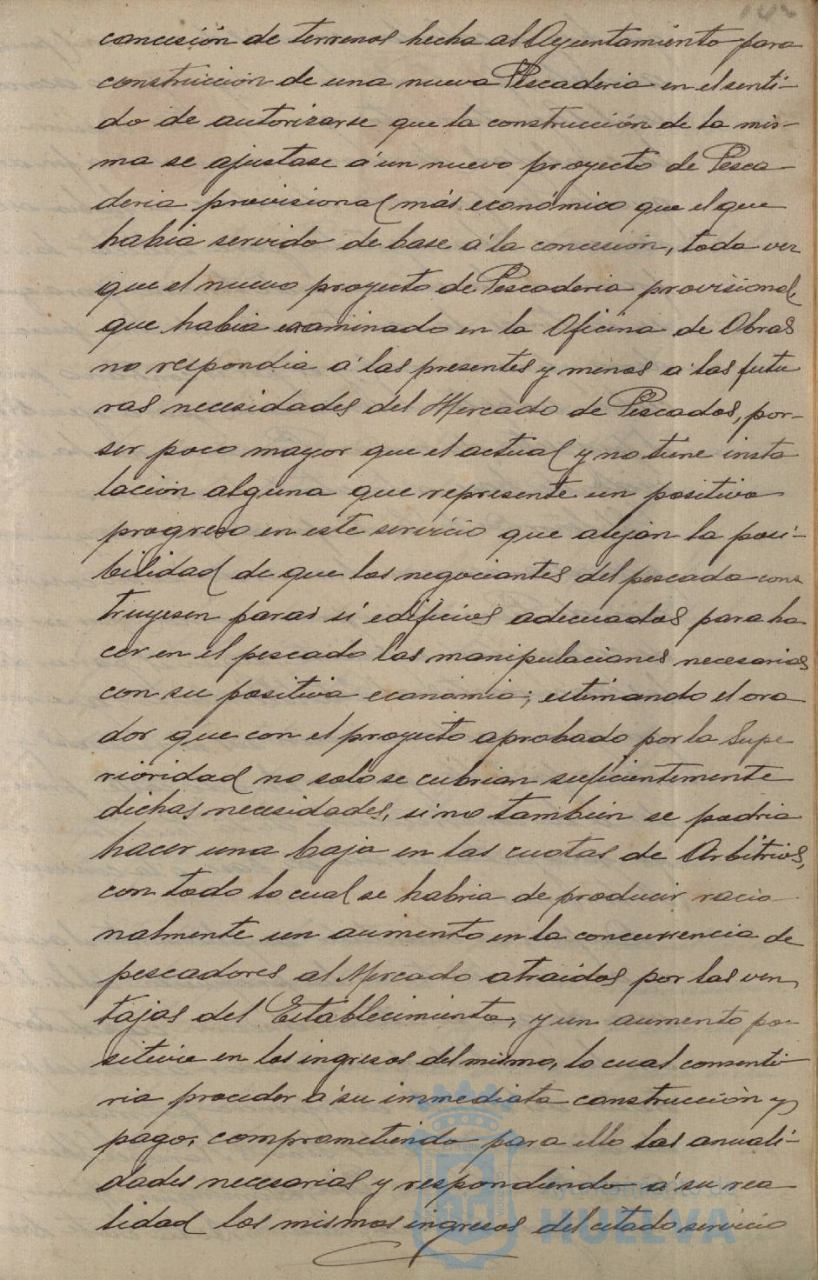 concesión de terrenos hecha al Ayuntamiento para
construcción de una nueva Pescaderia en el senti-
do de autorizarse que la construcción de la mis-
ma se ajustase á un nuevo proyecto de Pesca-
deria provisional más económico que el que
habia servido de base á la concesión, toda vez
que el nuevo proyecto de Pescaderia provisional,
que habia examinado en la Oficina de Obras
no respondia á las presentes y menos á las futu
ras necesidades del Mercado de Pescados, por-
ser poco mayor que el actual y no tiene insta
lación alguna que represente un positivo
progreso en este servicio que alejan la posi-
bilidad de que los negociantes del pescado cons
truyesen paras si edificios adecuados para ha
cer en el pescado las manipulaciones necesarias
con su positiva economia; estimando el ora
dor que con el proyecto aprobado por la Supe
rioridad no solo se cubrian suficientemente
dichas necesidades, sino tambien se podria
hacer una baja en las cuotas de Arbitrios,
con todo lo cual se habria de producir racio
nalmente un aumento en la concurrencia de
pescadores al Mercado atraidos por las ven
tajas del Establecimiento, y un aumento po-
sitivo en los ingresos del mismo, lo cual consenti
ria proceder á su immediata construcción y
pago, comprometiendo para ello las anuali-
dades necesarias y respondiendo á su rea
lidad los mismos ingresos del citado servicio
HUELVA